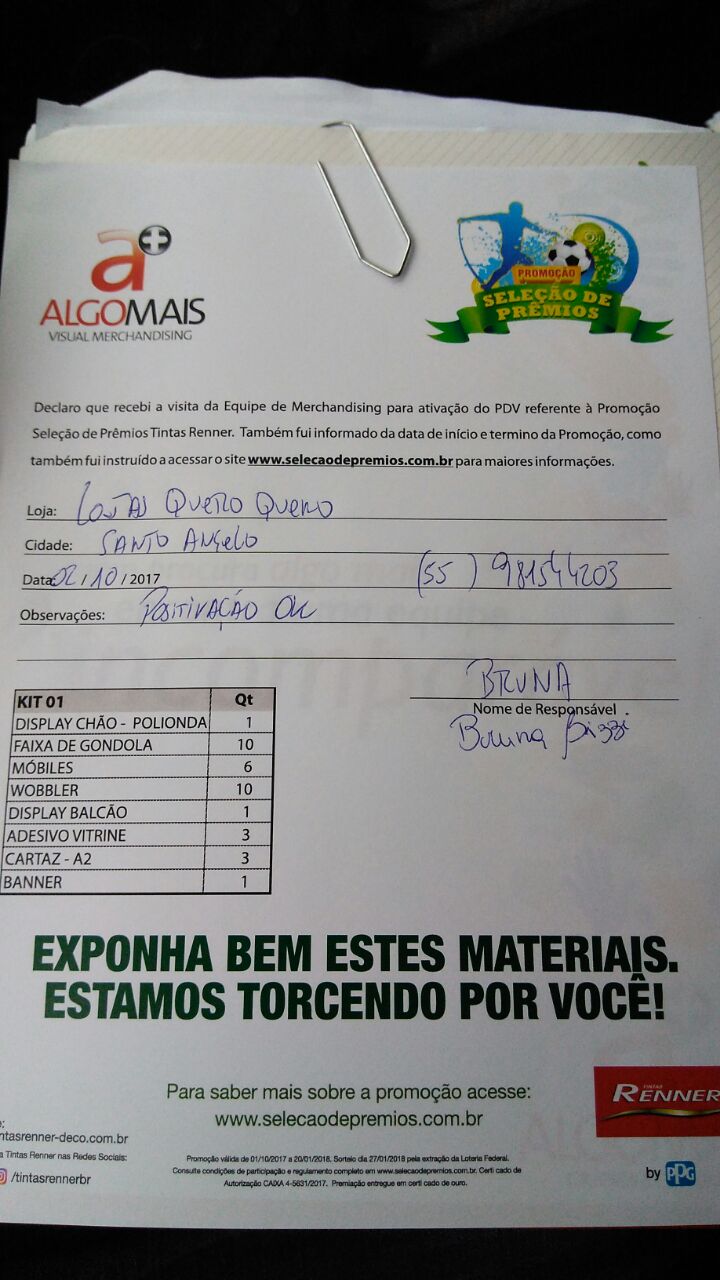 a+
ALGOMAIS
VISUAL MERCHANDISING
PROMOÇÃO
SELEÇÃO DE
PRÊMIOS
Declaro que recebi a visita da Equipe de Merchandising para ativação do PDV referente à Promoção
Seleção de Prêmios Tintas Renner. Também fui informado da data de início e termino da Promoção, como
também fui instruído a acessar o site www.selecaodepremios.com.br para maiores informações.
Loja: LOJAS QUERO QUERO
Cidade: SANTO ANGELO
Data: 02/10/2017 (55) 981544203
Observações: POSITIVAÇÃO OK
BRUNA
Nome de Responsável
Bruna
KIT 01 Qt
DISPLAY CHÃO - POLIONDA 1
FAIXA DE GONDOLA 10
MÓBILES 6
WOBBLER 10
DISPLAY BALCÃO 1
ADESIVO VITRINE 3
CARTAZ - A2 3
BANNER 1
EXPONHA BEM ESTES MATERIAIS.
ESTAMOS TORCENDO POR VOCÊ!
Para saber mais sobre a promoção acesse:
www.selecaodepremios.com.br
TINTAS
RENNER
e:
ntasrenner-deco.com.br
a Tintas Renner nas Redes Sociais:
/tintasrennerbr
Promoção válida de 01/10/2017 a 20/01/2018. Sorteio dia 27/01/2018 pela extração da Loteria Federal.
Consulte condições de participação e regulamento completo em www.selecaodepremios.com.br. Certi cado de
Autorização CAIXA 4-5631/2017. Premiação entregue em certi cado de ouro.
by PPG